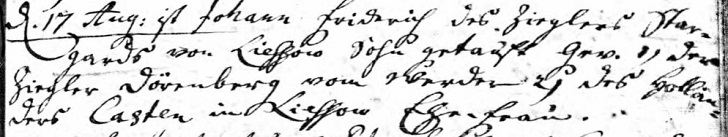 d. 17 Aug: ist Johann Friderich des Zieglers Star-
gards von Liessow Sohn getauft Gev. 1) der
Ziegler Dörenberg vom Werder 2) des Hollän-
ders Casten in Liessow Ehefrau.